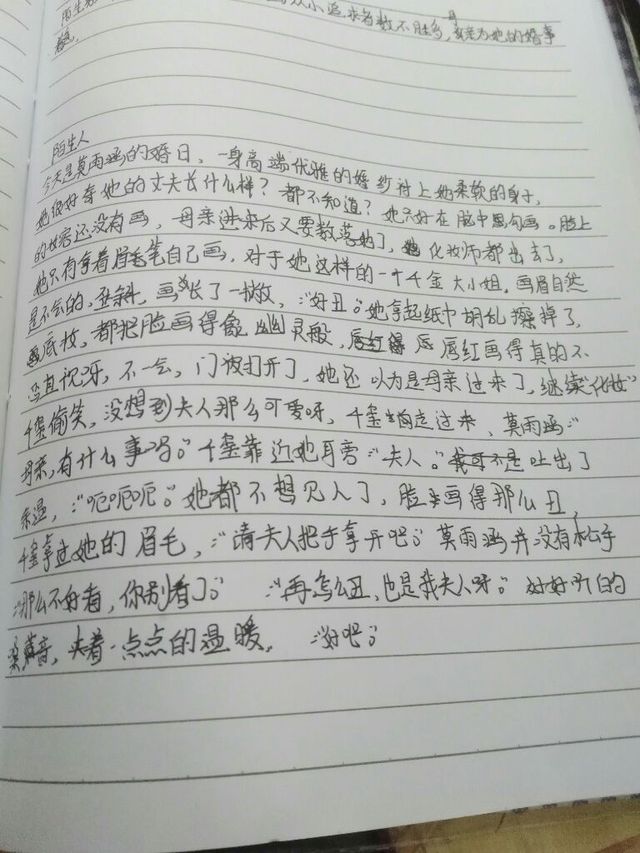 陌生
从小追求者数不胜多，母亲为她的婚事
陌生人
今天是莫雨涵的婚日，一身高端优雅的婚纱衬上她柔软的身子，
她很好奇她的丈夫长什么样？都不知道？她只好在脑中思勾画。脸上
的妆容还没有画，母亲进来后又要数落她了，她化妆师都出去了，
她只有拿着眉毛笔自己画，对于她这样的一个千金大小姐，画眉自然
是不会的，歪斜，画长了一些，“好丑。”她拿起纸巾胡乱擦掉了，
画底妆，都把脸画得像幽灵般，唇红画得真的不
忍直视呀，不一会，门被打开了，她还以为是母亲过来了，继续“化妆”
千偷笑，没想到夫人那么可爱呀，千走过来，莫雨涵：“
母亲，有什么事吗。”千靠近她耳旁：“夫人。”我可不是吐出了
温，：“呃呃呃。”她都不想见人了，脸画得那么丑，
千拿过她的眉毛，：“请夫人把手拿开吧。”莫雨涵并没有松手
“那么不好看，你别看了。” “再怎么丑，也是我夫人呀。”好好听的
声音，夹着一点点的温暖。 “好吧。”